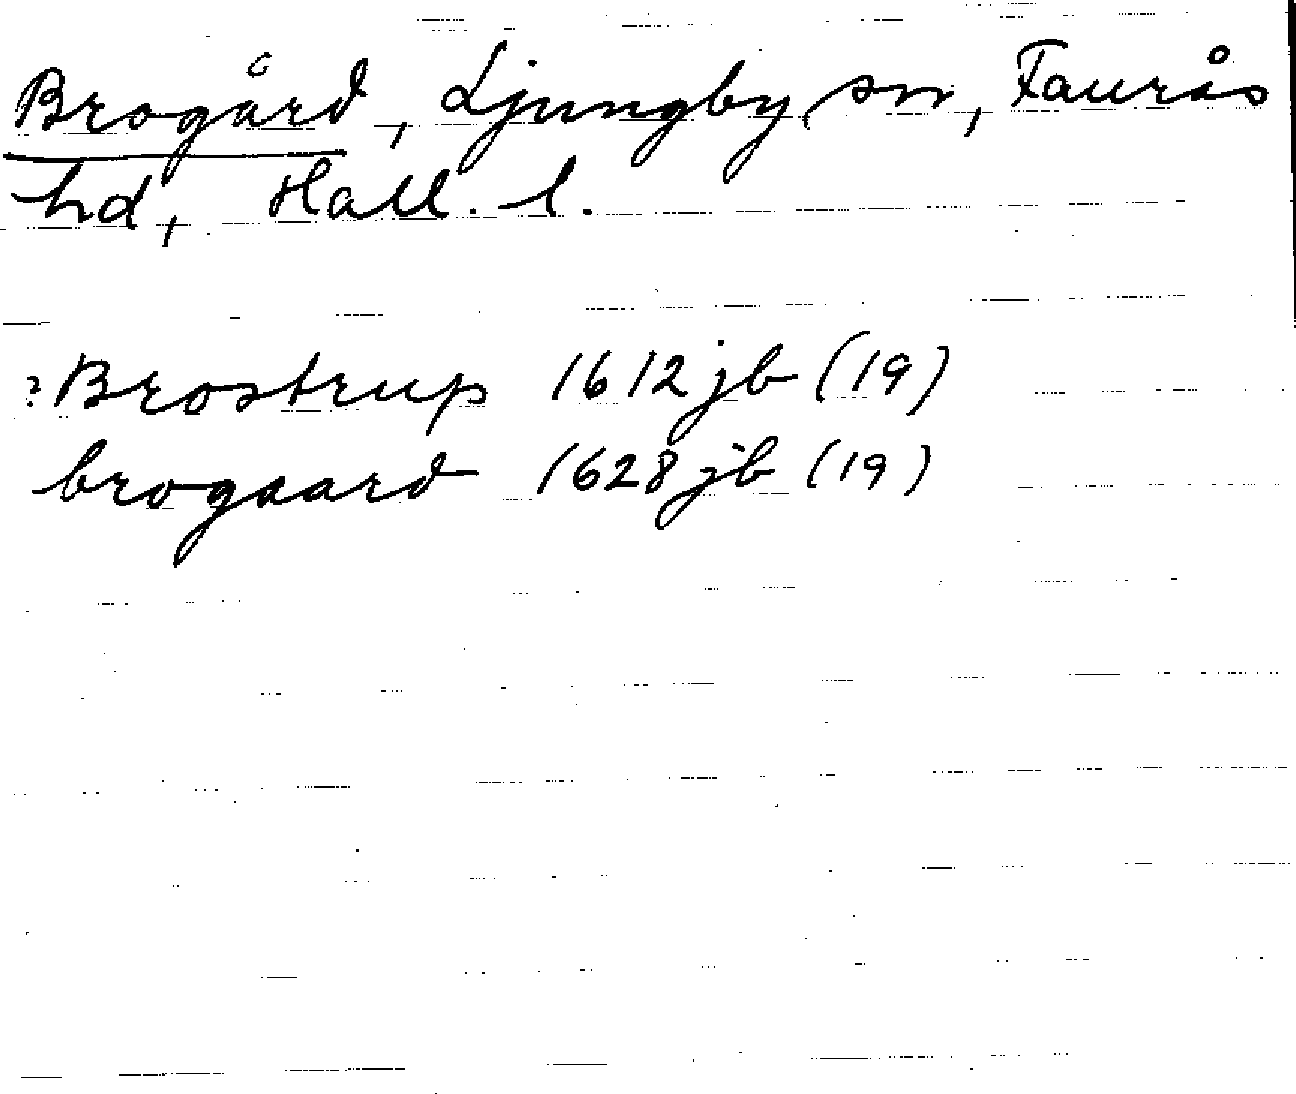 Brogård, Ljungby sn, Faurås
hd, Hall. l.
?Brostrup 1612 jb (19)
brogaard 1628 jb (19)